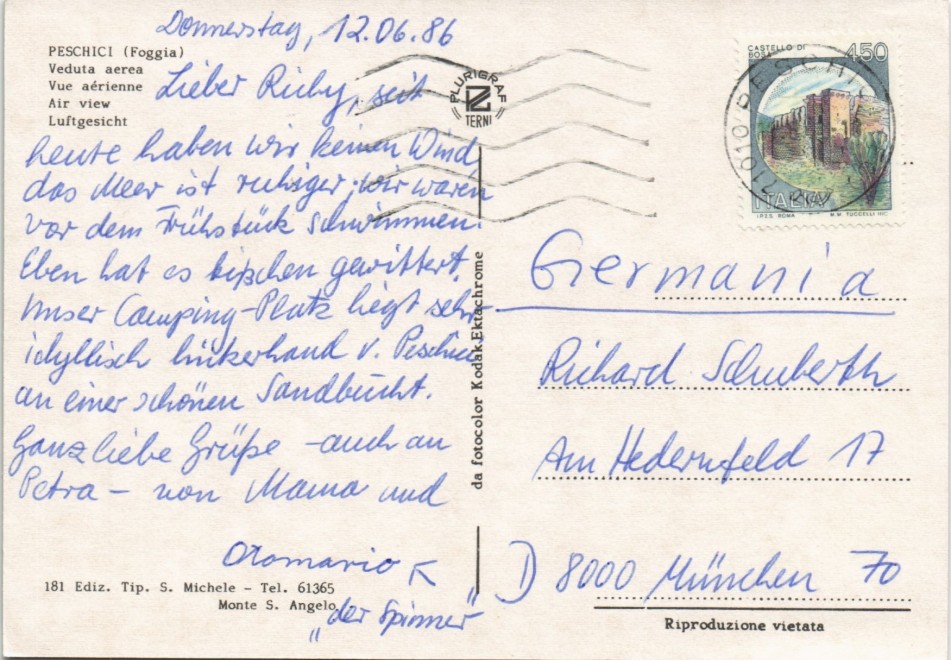 Donnerstag, 12.06.86
PESCHICI (Foggia)
Veduta aerea
Vue aérienne
Air view
Luftgesicht
Lieber Richy, seit
heute haben wir keinen Wind,
das Meer ist ruhiger, wir waren
vor dem Frühstück schwimmen.
Eben hat es bißchen gewittert.
Unser Camping-Platz liegt sehr
idyllisch linkerhand v. Peschici
an einer schönen Sandbucht.
Ganz liebe Grüße - auch an
Petra - von Mama und
Otomario
„der Spinner"
181 Ediz. Tip. S. Michele - Tel. 61365
Monte S. Angelo
PLURIGRAF
TERNI
da fotocolor Kodak Ektachrome
CASTELLO DI
BOSA
450
ITALIA
I.P.Z.S. ROMA
M.M. TUCCELLI INC.
71010 PESCHICI
Germania
Richard Schuberth
Am Hedernfeld 17
D 8000 München 70
Riproduzione vietata